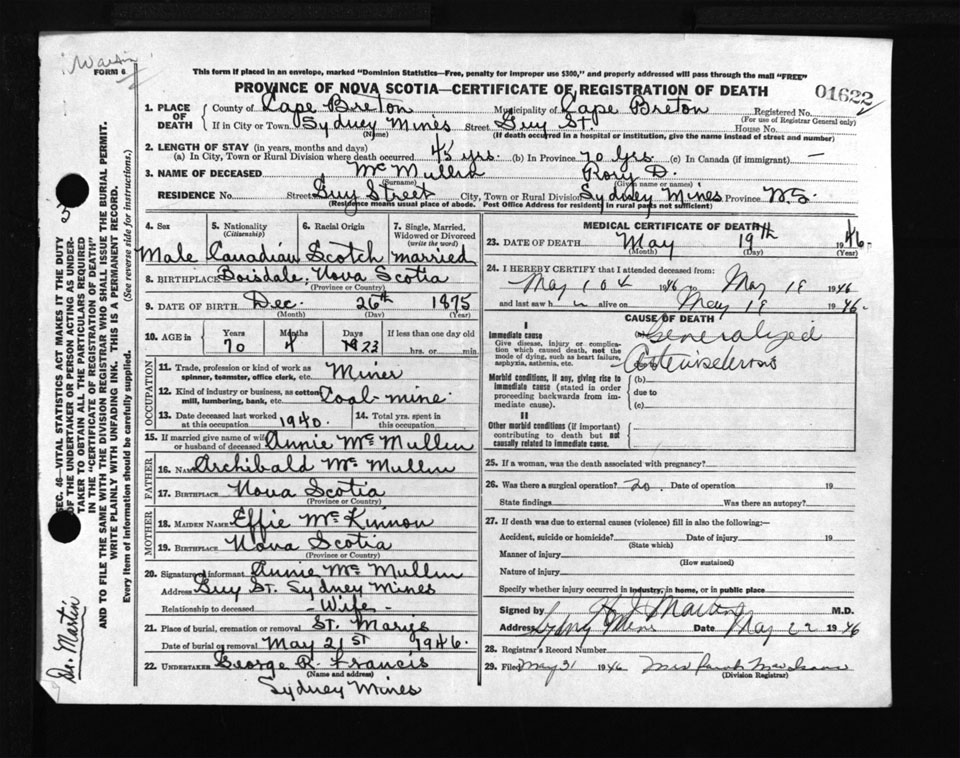 FORM 6
This form if placed in an envelope, marked "Dominion Statistics—Free, penalty for improper use $300," and properly addressed will pass through the mail "FREE"
PROVINCE OF NOVA SCOTIA—CERTIFICATE OF REGISTRATION OF DEATH
01622
1. PLACE OF DEATH County of Cape Breton Municipality of Cape Breton Registered No.
(For use of Registrar General only)
If in City or Town Sydney Mines Street Guy St. House No.
(Name) (If death occurred in a hospital or institution, give the name instead of street and number)
2. LENGTH OF STAY (in years, months and days)
(a) In City, Town or Rural Division where death occurred 45 yrs. (b) In Province 70 Yrs. (c) In Canada (if immigrant) —
3. NAME OF DECEASED McMullin Rory D.
(Surname) (Given name or names)
RESIDENCE No. Street Guy Street City, Town or Rural Division Sydney Mines Province N.S.
(Residence means usual place of abode. Post Office Address for residents in rural parts not sufficient)
4. Sex 5. Nationality (Citizenship) 6. Racial Origin 7. Single, Married, Widowed or Divorced (write the word)
Male Canadian Scotch married
8. BIRTHPLACE Boisdale, Nova Scotia
(Province or Country)
9. DATE OF BIRTH Dec. 26th 1875
(Month) (Day) (Year)
10. AGE in Years Months Days If less than one day old
70 4 23 hrs. or min.
OCCUPATION
11. Trade, profession or kind of work as spinner, teamster, office clerk, etc. Miner
12. Kind of industry or business, as cotton mill, lumbering, bank, etc. Coal-mine.
13. Date deceased last worked at this occupation 1940. 14. Total yrs. spent in this occupation
15. If married give name of wife or husband of deceased Annie McMullin
FATHER
16. NAME Archibald McMullin
17. BIRTHPLACE Nova Scotia
(Province or Country)
MOTHER
18. MAIDEN NAME Effie McKinnon
19. BIRTHPLACE Nova Scotia
(Province or Country)
20. Signature of informant Annie McMullin
Address Guy St. Sydney Mines
Relationship to deceased - Wife -
21. Place of burial, cremation or removal St. Marys
Date of burial or removal May 21st 1946.
22. UNDERTAKER George R. Francis
(Name and address)
Sydney Mines
MEDICAL CERTIFICATE OF DEATH
23. DATE OF DEATH May 19th 1946
(Month) (Day) (Year)
24. I HEREBY CERTIFY that I attended deceased from:
May 10th 1946 to May 19 1946
and last saw h alive on May 19 1946.
CAUSE OF DEATH
I
Immediate cause
Give disease, injury or complication which caused death, not the mode of dying, such as heart failure, asphyxia, asthenia, etc.
Generalized
Arteriosclerosis
Morbid conditions, if any, giving rise to immediate cause (stated in order proceeding backwards from immediate cause).
(b)
due to
(c)
II
Other morbid conditions (if important) contributing to death but not causally related to immediate cause.
25. If a woman, was the death associated with pregnancy?
26. Was there a surgical operation? no. Date of operation 19
State findings Was there an autopsy?
27. If death was due to external causes (violence) fill in also the following:—
Accident, suicide or homicide? Date of injury 19
(State which)
Manner of injury
(How sustained)
Nature of injury
Specify whether injury occurred in industry, in home, or in public place
Signed by H. J. Martin M.D.
Address Sydney Mines Date May 22 1946
28. Registrar's Record Number
29. Filed May 31 1946 Mrs Sarah
(Division Registrar)
SEC. 46—VITAL STATISTICS ACT MAKES IT THE DUTY
OF THE UNDERTAKER OR PERSON ACTING AS UNDER-
TAKER TO OBTAIN ALL THE PARTICULARS REQUIRED
IN THE "CERTIFICATE OF REGISTRATION OF DEATH"
AND TO FILE THE SAME WITH THE DIVISION REGISTRAR WHO SHALL ISSUE THE BURIAL PERMIT.
WRITE PLAINLY WITH UNFADING INK. THIS IS A PERMANENT RECORD.
Every item of information should be carefully supplied. (See reverse side for instructions.)
Dr. Martin